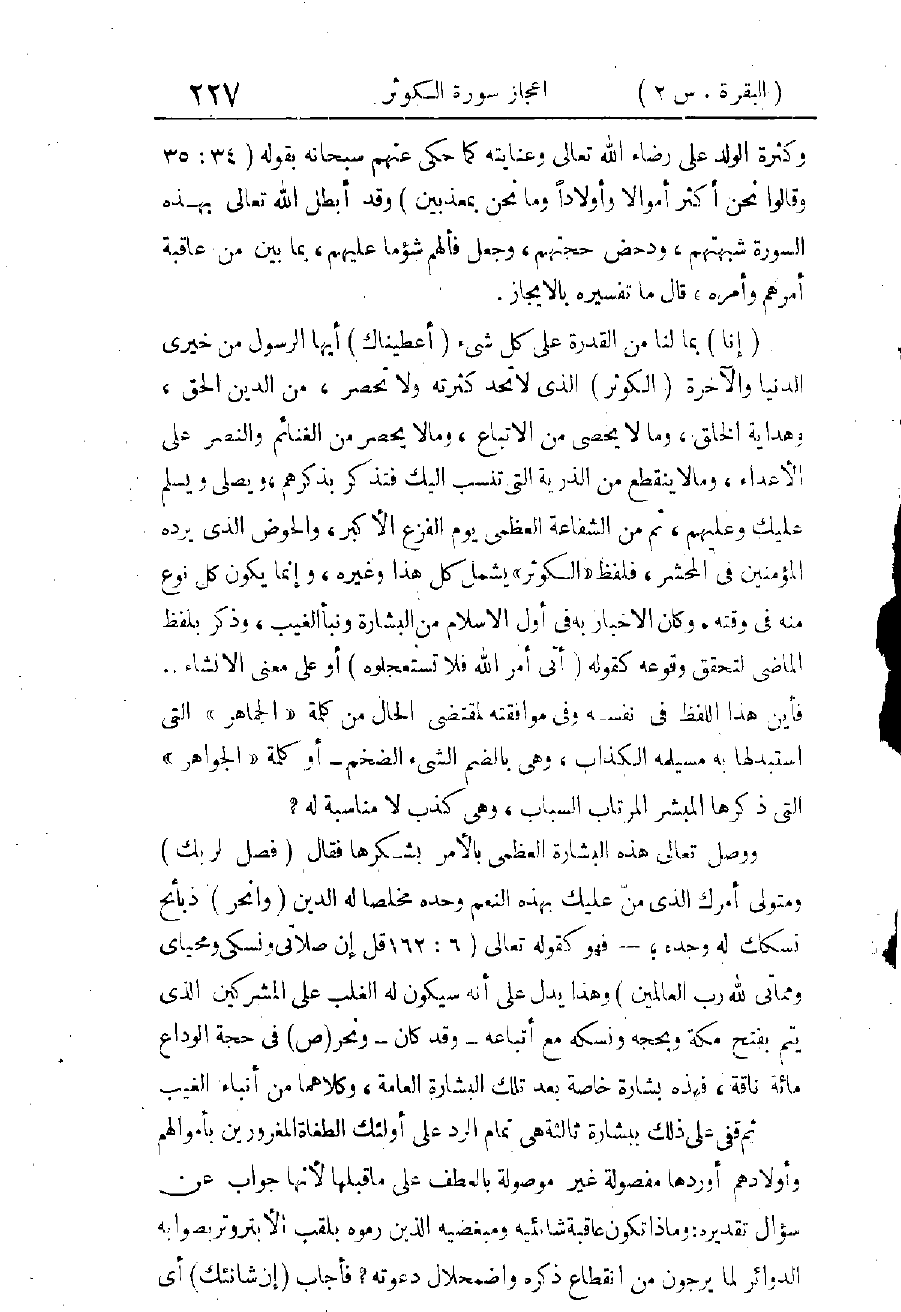 ( البقرة . س ٢ ) اعجاز سورة الكوثر ٢٢٧
وكثرة الولد على رضاء الله تعالى وعنايته كما حكى عنهم سبحانه بقوله ( ٣٤ : ٣٥
وقالوا نحن أكثر أموالا وأولاداً وما نحن بمعذبين ) وقد أبطل الله تعالى بهـذه
السورة شبهتهم ، ودحض حجتهم ، وجعل فألهم شؤما عليهم ، بما بين من عاقبة
أمرهم وأمره ، قال ما تفسيره بالايجاز .
( إنا ) بما لنا من القدرة على كل شيء ( أعطيناك ) أيها الرسول من خيرى
الدنيا والآخرة ( الكوثر ) الذى لا تحد كثرته ولا تحصر ، من الدين الحق ،
وهداية الخلق ، وما لا يحصى من الاتباع ، ومالا يحصر من الغنائم والنصر على
الأعداء ، ومالا ينقطع من الذرية التى تنسب اليك فتذكر بذكرهم ، ويصلى ويسلم
عليك وعليهم ، ثم من الشفاعة العظمى يوم الفزع الأكبر ، والحوض الذى يرده
المؤمنين فى المحشر ، فلفظ «الكوثر» يشمل كل هذا وغيره ، وإنما يكون كل نوع
منه فى وقته . وكان الاخبار به فى أول الاسلام من البشارة ونبأ الغيب ، وذكر بلفظ
الماضى لتحقق وقوعه كقوله ( أتى أمر الله فلا تستعجلوه ) أو على معنى الانشاء ..
فأين هذا اللفظ فى نفسـه وفى موافقته لمقتضى الحال من كلمة « الجماهر » التى
استبدلها به مسيلمه الكذاب ، وهى بالضم الشىء الضخم ــ أو كلمة « الجواهر »
التى ذكرها المبشر المرتاب السباب ، وهى كذب لا مناسبة له ؟
ووصل تعالى هذه البشارة العظمى بالأمر بشـكرها فقال ( فصل لربك )
ومتولى أمرك الذى منّ عليك بهذه النعم وحده مخلصا له الدين ( وانحر ) ذبائح
نسكك له وحده ؛ ــ فهو كقوله تعالى ( ٦ : ١٦٢ قل إن صلاتى ونسكى ومحياى
ومماتى لله رب العالمين ) وهذا يدل على أنه سيكون له الغلب على المشركين الذى
يتم بفتح مكة وبحجه ونسكه مع أتباعه ــ وقد كان ــ ونحر (ص) فى حجة الوداع
مائة ناقة ، فهذه بشارة خاصة بعد تلك البشارة العامة ، وكلاهما من أنباء الغيب
ثم قفى على ذلك ببشارة ثالثة هى تمام الرد على أولئك الطغاة المغرورين بأموالهم
وأولادهم أوردها مفصولة غير موصولة بالعطف على ماقبلها لأنها جواب عن
سؤال تقديره : وماذا تكون عاقبة شانئيه ومبغضيه الذين رموه بلقب الأبتر وتربصوا به
الدوائر لما يرجون من انقطاع ذكره واضمحلال دعوته ؟ فأجاب ( إن شانئك ) أى